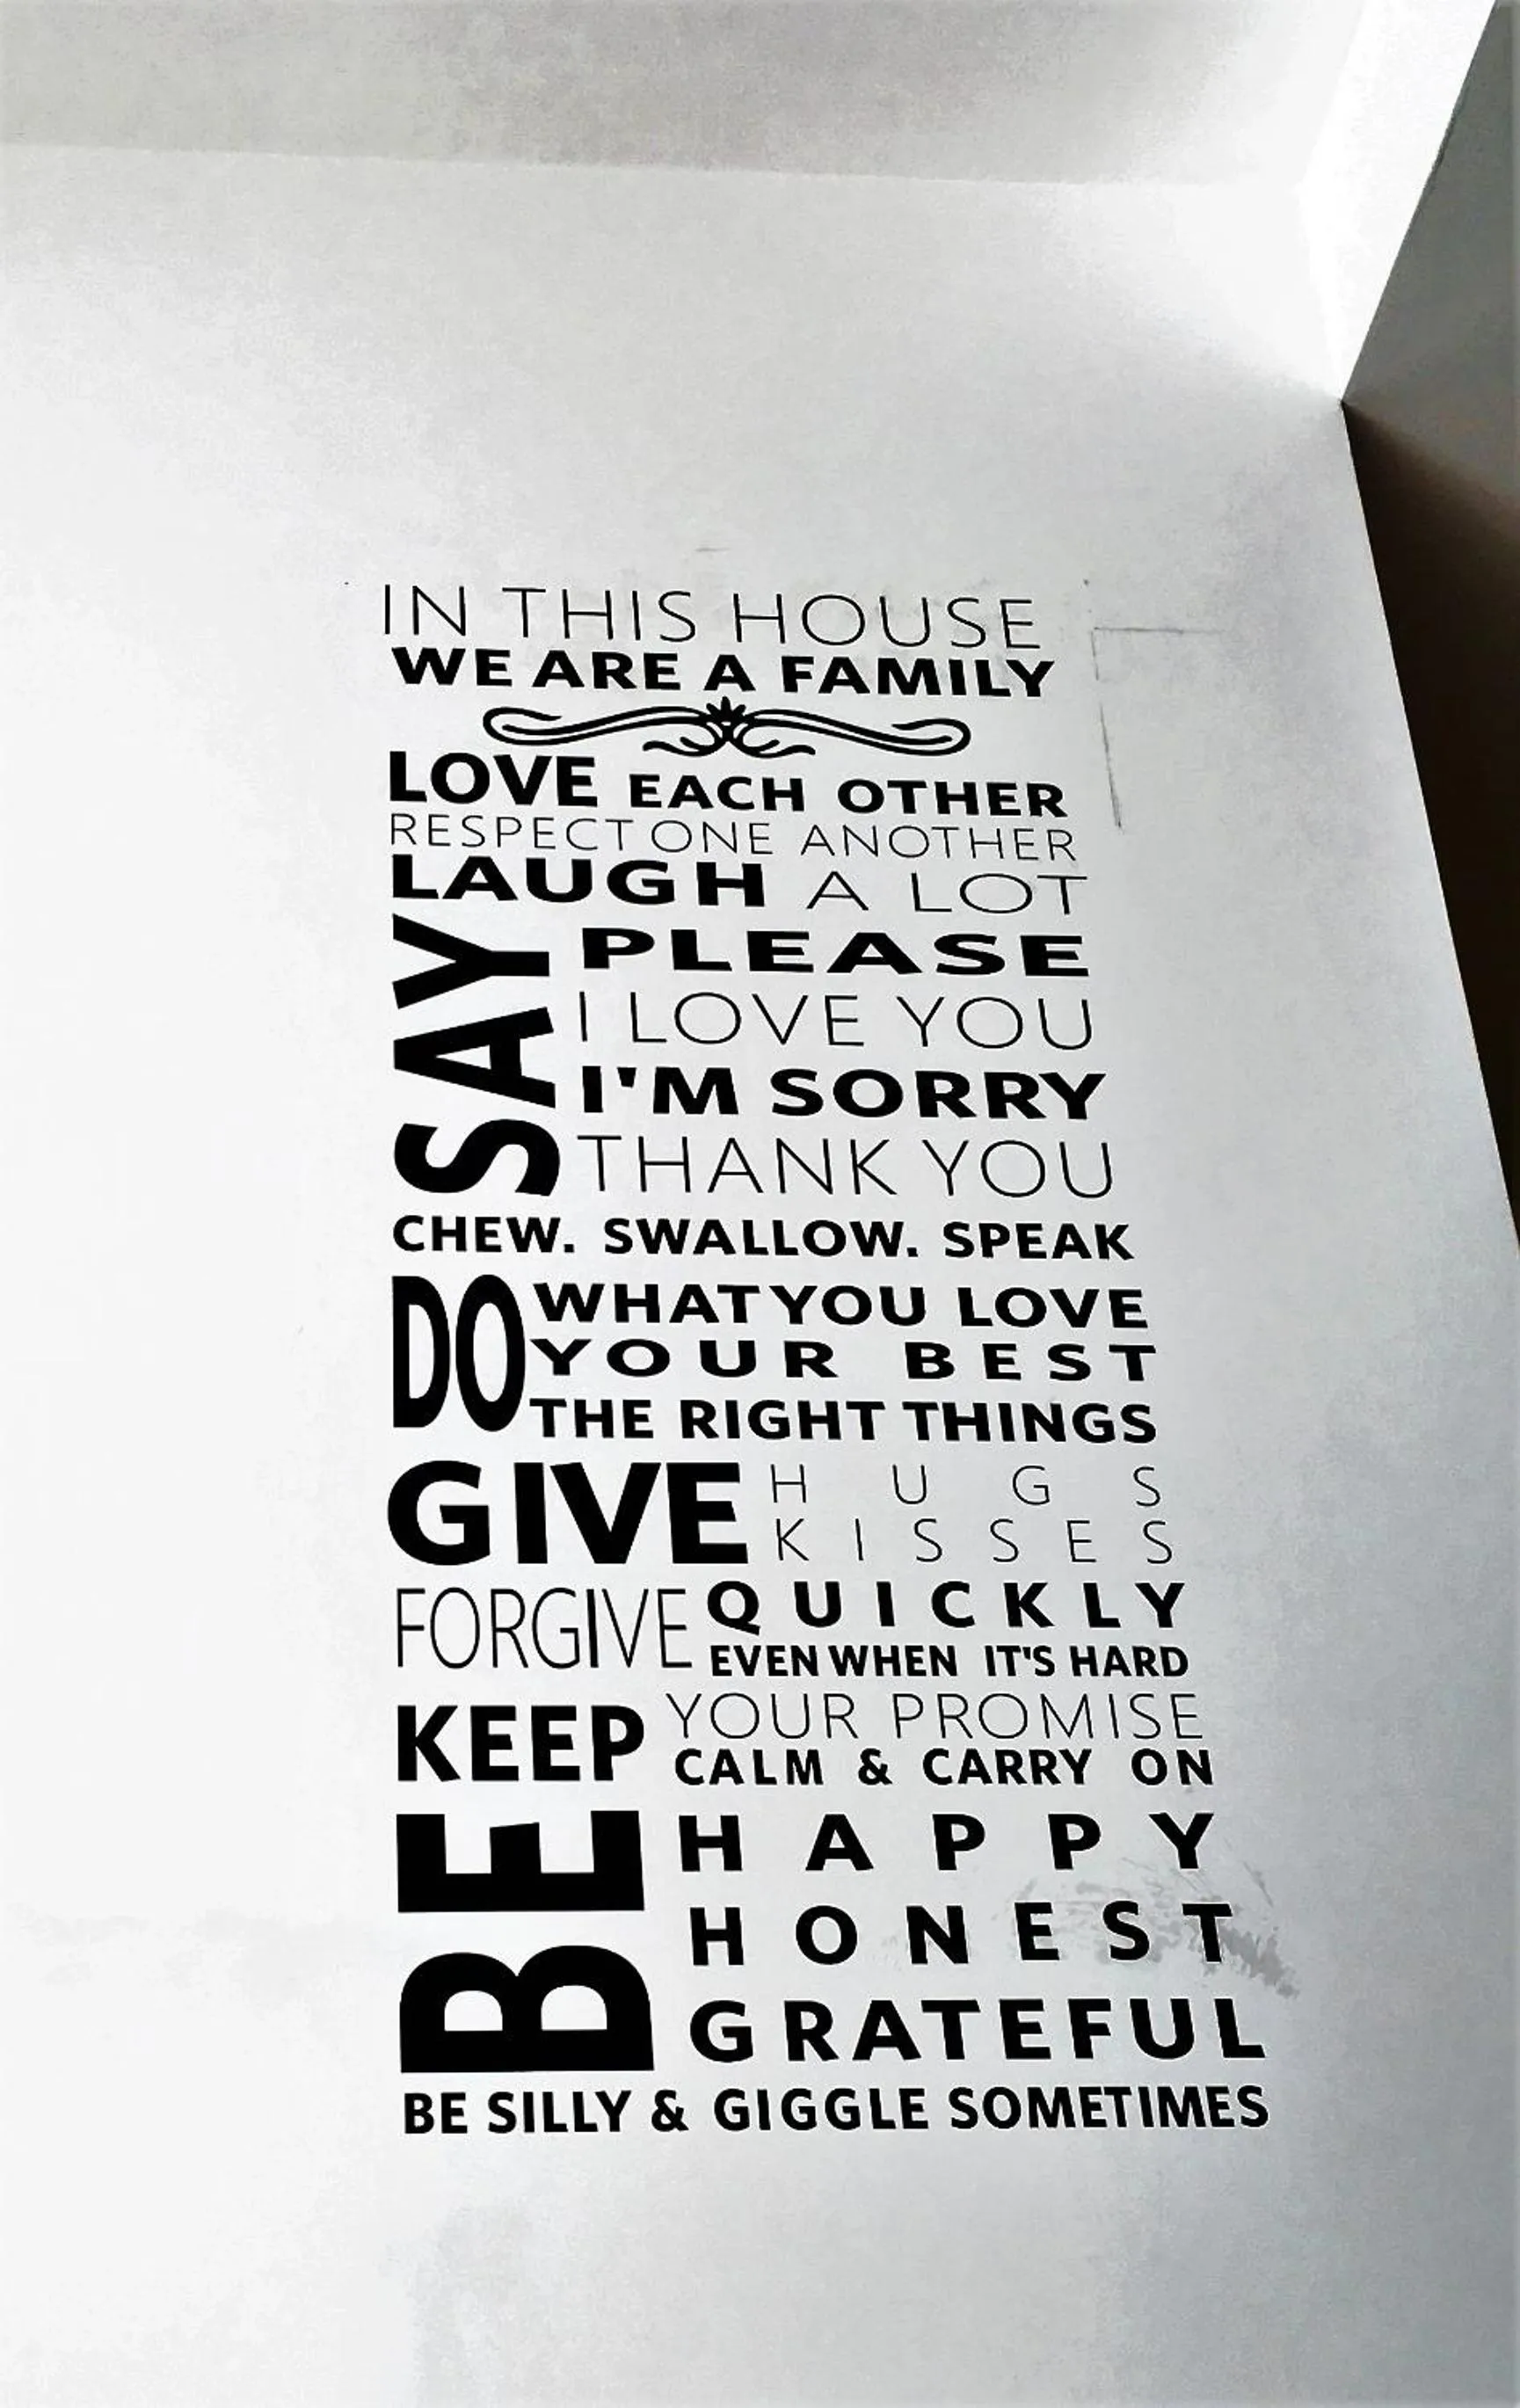 IN THIS HOUSE
WE ARE A FAMILY
LOVE EACH OTHER
RESPECT ONE ANOTHER
LAUGH A LOT
SAY
PLEASE
I LOVE YOU
I'M SORRY
THANK YOU
CHEW. SWALLOW. SPEAK
DO
WHAT YOU LOVE
YOUR BEST
THE RIGHT THINGS
GIVE
HUGS
KISSES
FORGIVE
QUICKLY
EVEN WHEN IT'S HARD
KEEP
YOUR PROMISE
CALM & CARRY ON
BE
HAPPY
HONEST
GRATEFUL
BE SILLY & GIGGLE SOMETIMES